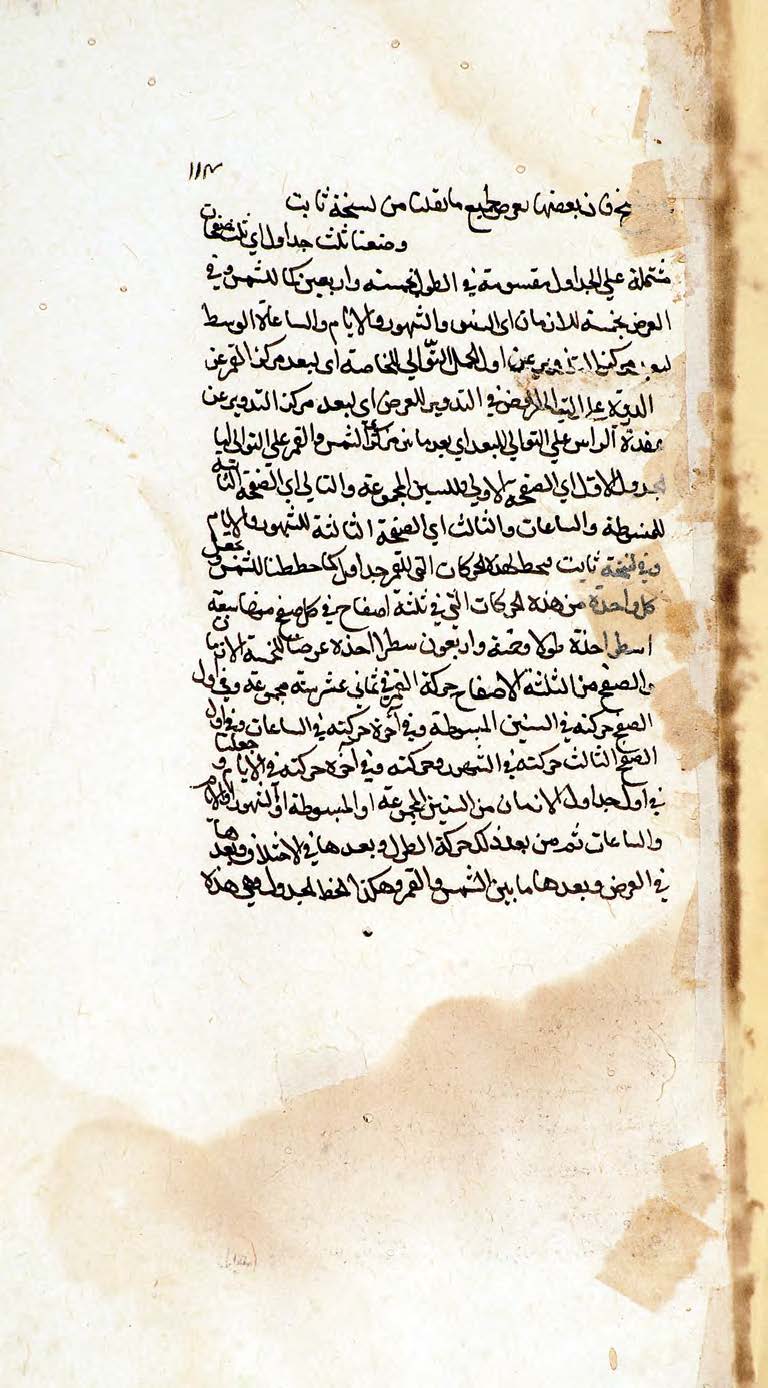 ١١٣
فان بعضها ما نقلنا من نسخة ثابت
وضعنا ثلث جداول اي ثلث صفحات
مشتملة علي الجداول مقسومة في الطول بخمسة واربعين كما للشمس وفي
العرض بخمسة للازمان اي السنين والشهور والايام والساعات الوسط
مركز التدوير عن اول الحمل التوالي للخاصة اي لبعد مركز القمر عن
الذروة علي التوالي في التدوير للعرض اي لبعد مركز التدوير عن
عقدة الراس علي التوالي للبعد اي بعد ما بين مركزي الشمس والقمر علي التوالي
الجدول الاول اي الصفحة الاولي للسنين المجموعة والتالي اي الصفحة الثانية
للمبسوطة والساعات والثالث اي الصفحة الثالثة للشهور والايام
وفي نسخة ثابت نخط لهذه الحركات التي للقمر جداول كما خططنا للشمس ونجعل
كل واحدة من هذه الحركات التي في ثلثة اصفاح في كل صفح منها
اسطر اخذة طولا وخمسة واربعون سطرا اخذة عرضا
والصفح من الثلثة الاصفاح حركة القمر في ثماني عشر سنه مجموعة وفي اول
الصفح حركته في السنين المبسوطة وفي آخره حركته في الساعات وفي اول
الصفح الثالث حركته في الشهور وحركته وفي آخره حركته في الايام وجعلنا
في اول جداول الازمان من السنين المجموعة او المبسوطة او الشهور او الايام
والساعات ثم من بعد ذلك حركة الطول وبعدها في الاختلاف وبعدها
في العرض وبعدها ما بين الشمس والقمر وهكذا نخط الجدول وهي هذه